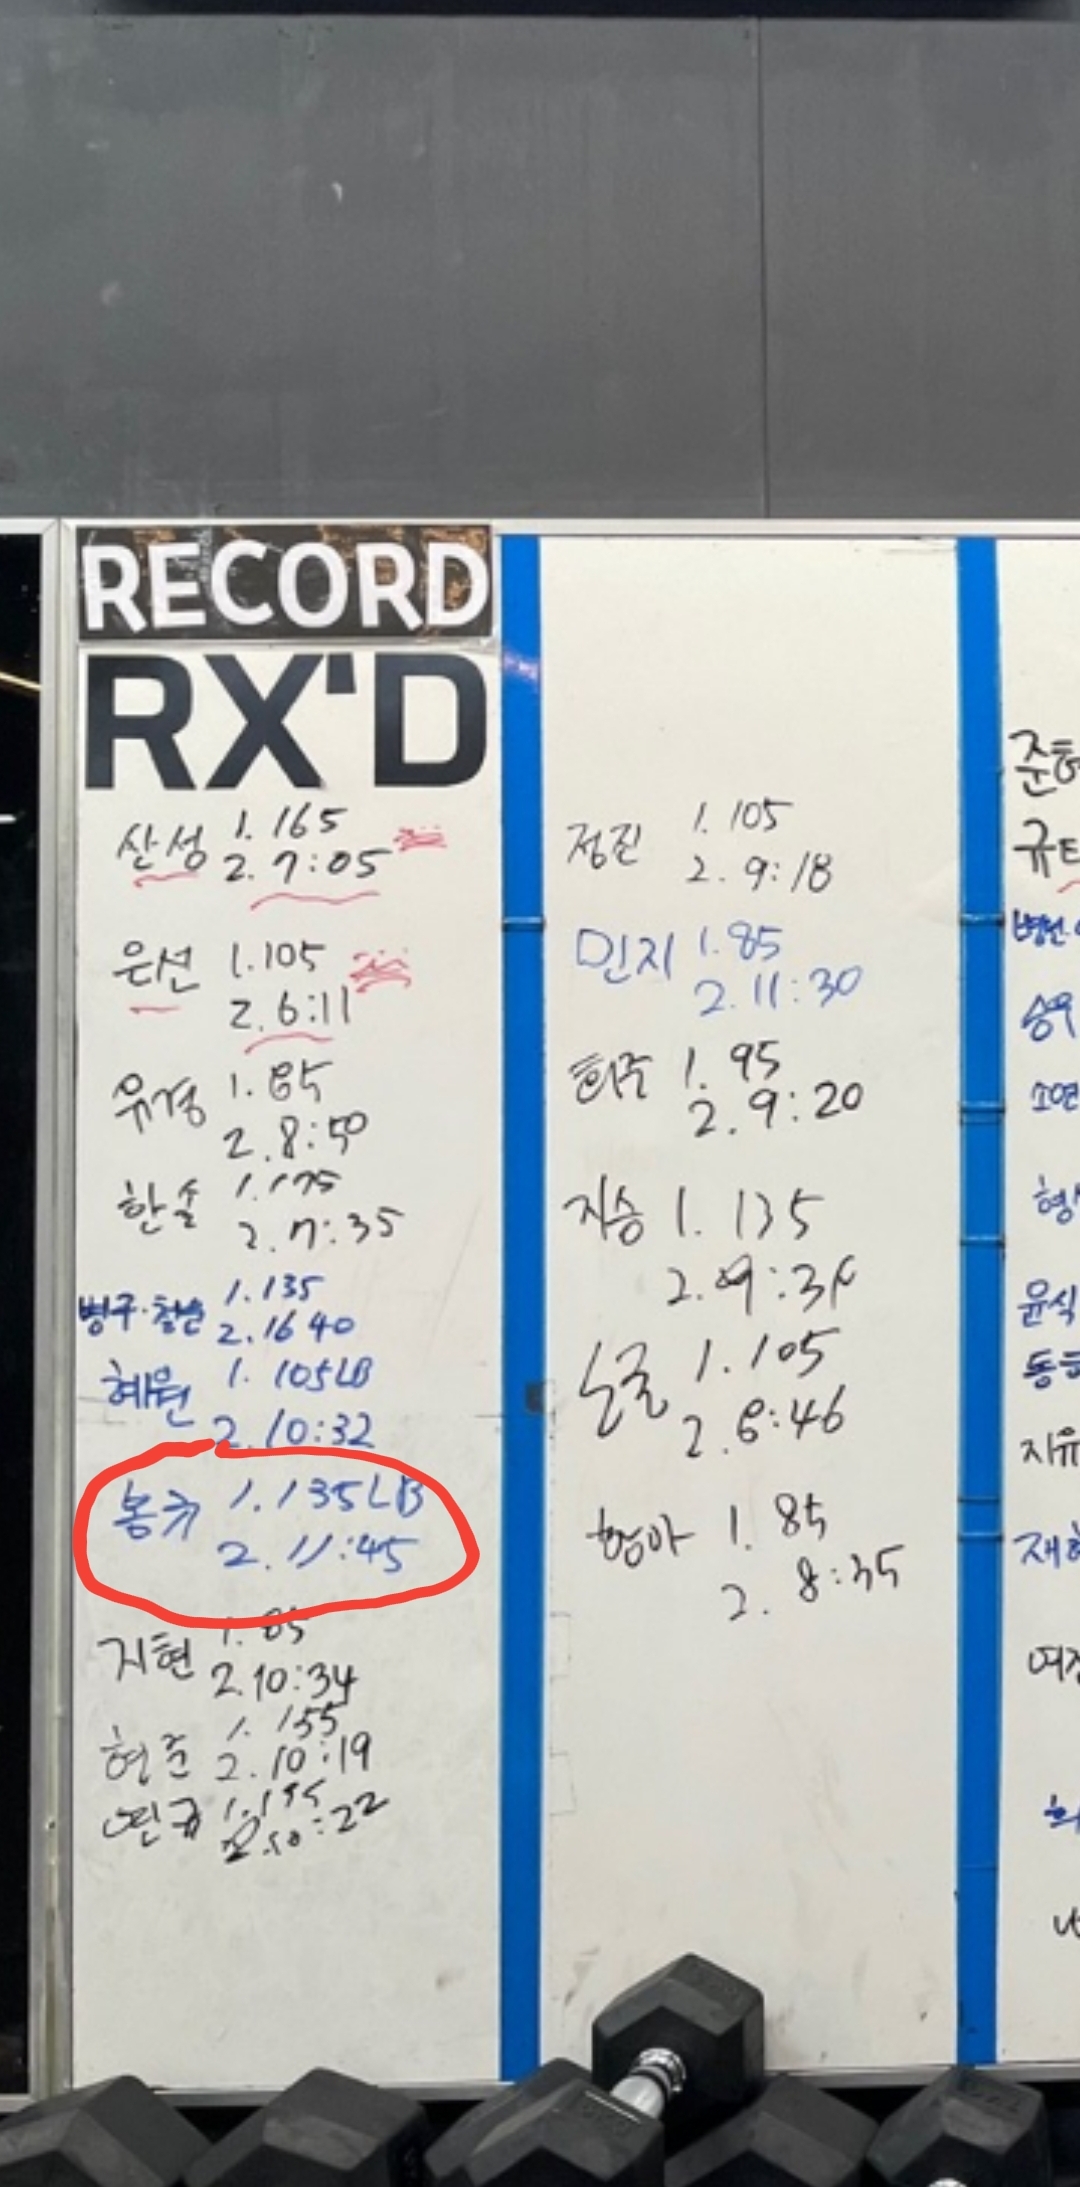 RECORD
RX'D
산성 1. 165
2. 7:05
은선 1. 105
2. 6:11
유경 1. 85
2. 8:50
한솔 1. 175
2. 7:35
병구·철순 1. 135
2. 16 40
혜원 1. 105LB
2. 10:32
봉규 1. 135LB
2. 11:45
지현 1. 85
2. 10:34
현준 1. 155
2. 10:19
1.
:22
정진 1. 105
2. 9:18
민지 1. 85
2. 11:30
희주 1. 95
2. 9:20
지승 1. 135
2. 9:
1. 105
2. 6:46
형아 1. 85
2. 8:35
준형
규
병헌
승우
소연
형
윤식
동
지유
재
여정
희